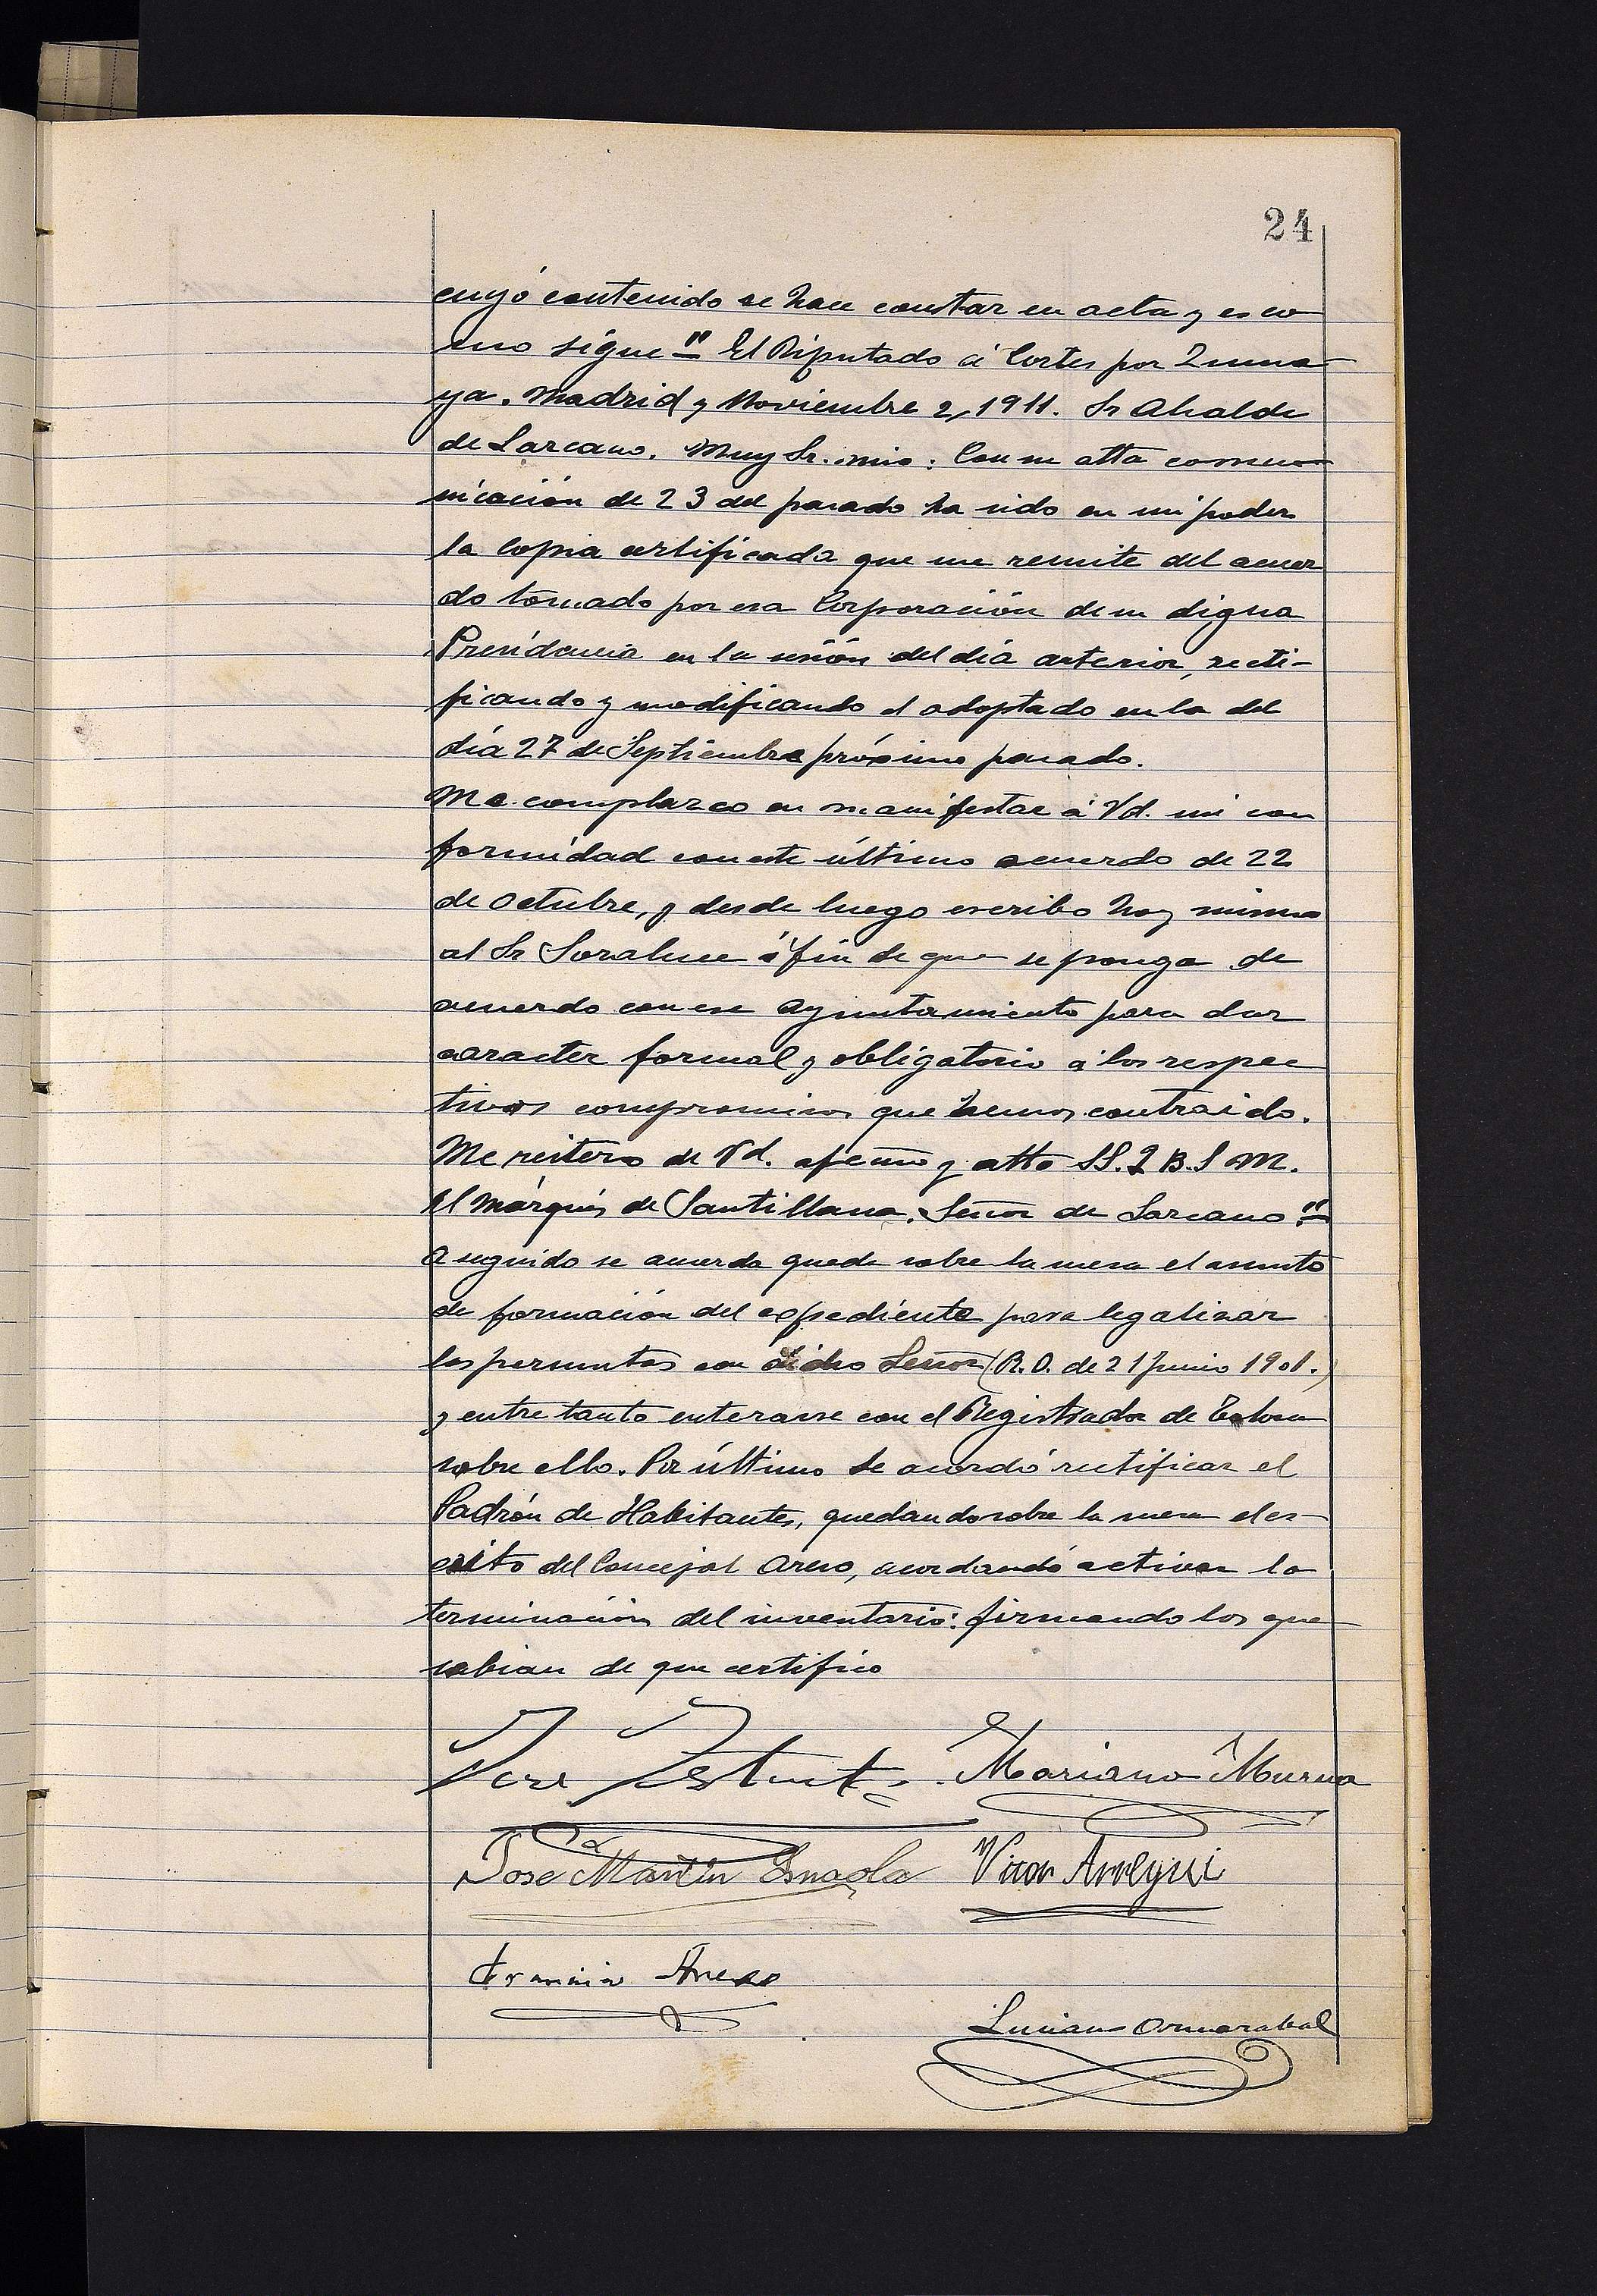 24
cuyó contenido se hace constar en acta y es co
mo sigue " El Diputado á Cortes por Zuma
ya. Madrid y Noviembre 2, 1911. Sr Alcalde
de Lazcano. Muy Sr. mio: Con su atta comu
nicación de 23 del pasado ha sido en mi poder
la copia certificada que me remite del acuer
do tomado por esa Corporación de su digna
Presidencia en la sesión del día anterior, recti-
ficando y modificando el adoptado en la del
día 27 de Septiembre próximo pasado.
Me complazco en manifestar á Vd. mi con
formidad con este último acuerdo de 22
de Octubre, y desde luego escribo hoy mismo
al Sr Soraluce á fin de que se ponga de
acuerdo con ese Ayuntamiento para dar
caracter formal y obligatorio á los respec
tivos compromisos que hemos contraido.
Me reitero de Vd. afecmo y atto SS. Q B. S M.
El Márqués de Santillana. Señor de Lazcano "
A seguido se acuerda quede sobre la mesa el asunto
de formación del expediente para legalizar
las permutas con dicho Señor (R. O. de 21 Junio 1901.)
y entre tanto enterarse con el Registrador de Tolosa
sobre ello. Por último se acordó rectificar el
Padrón de Habitantes, quedando sobre la mesa el es-
crito del Concejal Areso, acordandó activar la
terminación del inventario: firmando los que
sabian de que certifico
Jose Mariano Murua
Jose Martin Insaola Victor Arregui
Francisco Areso
Luciano Ormazabal